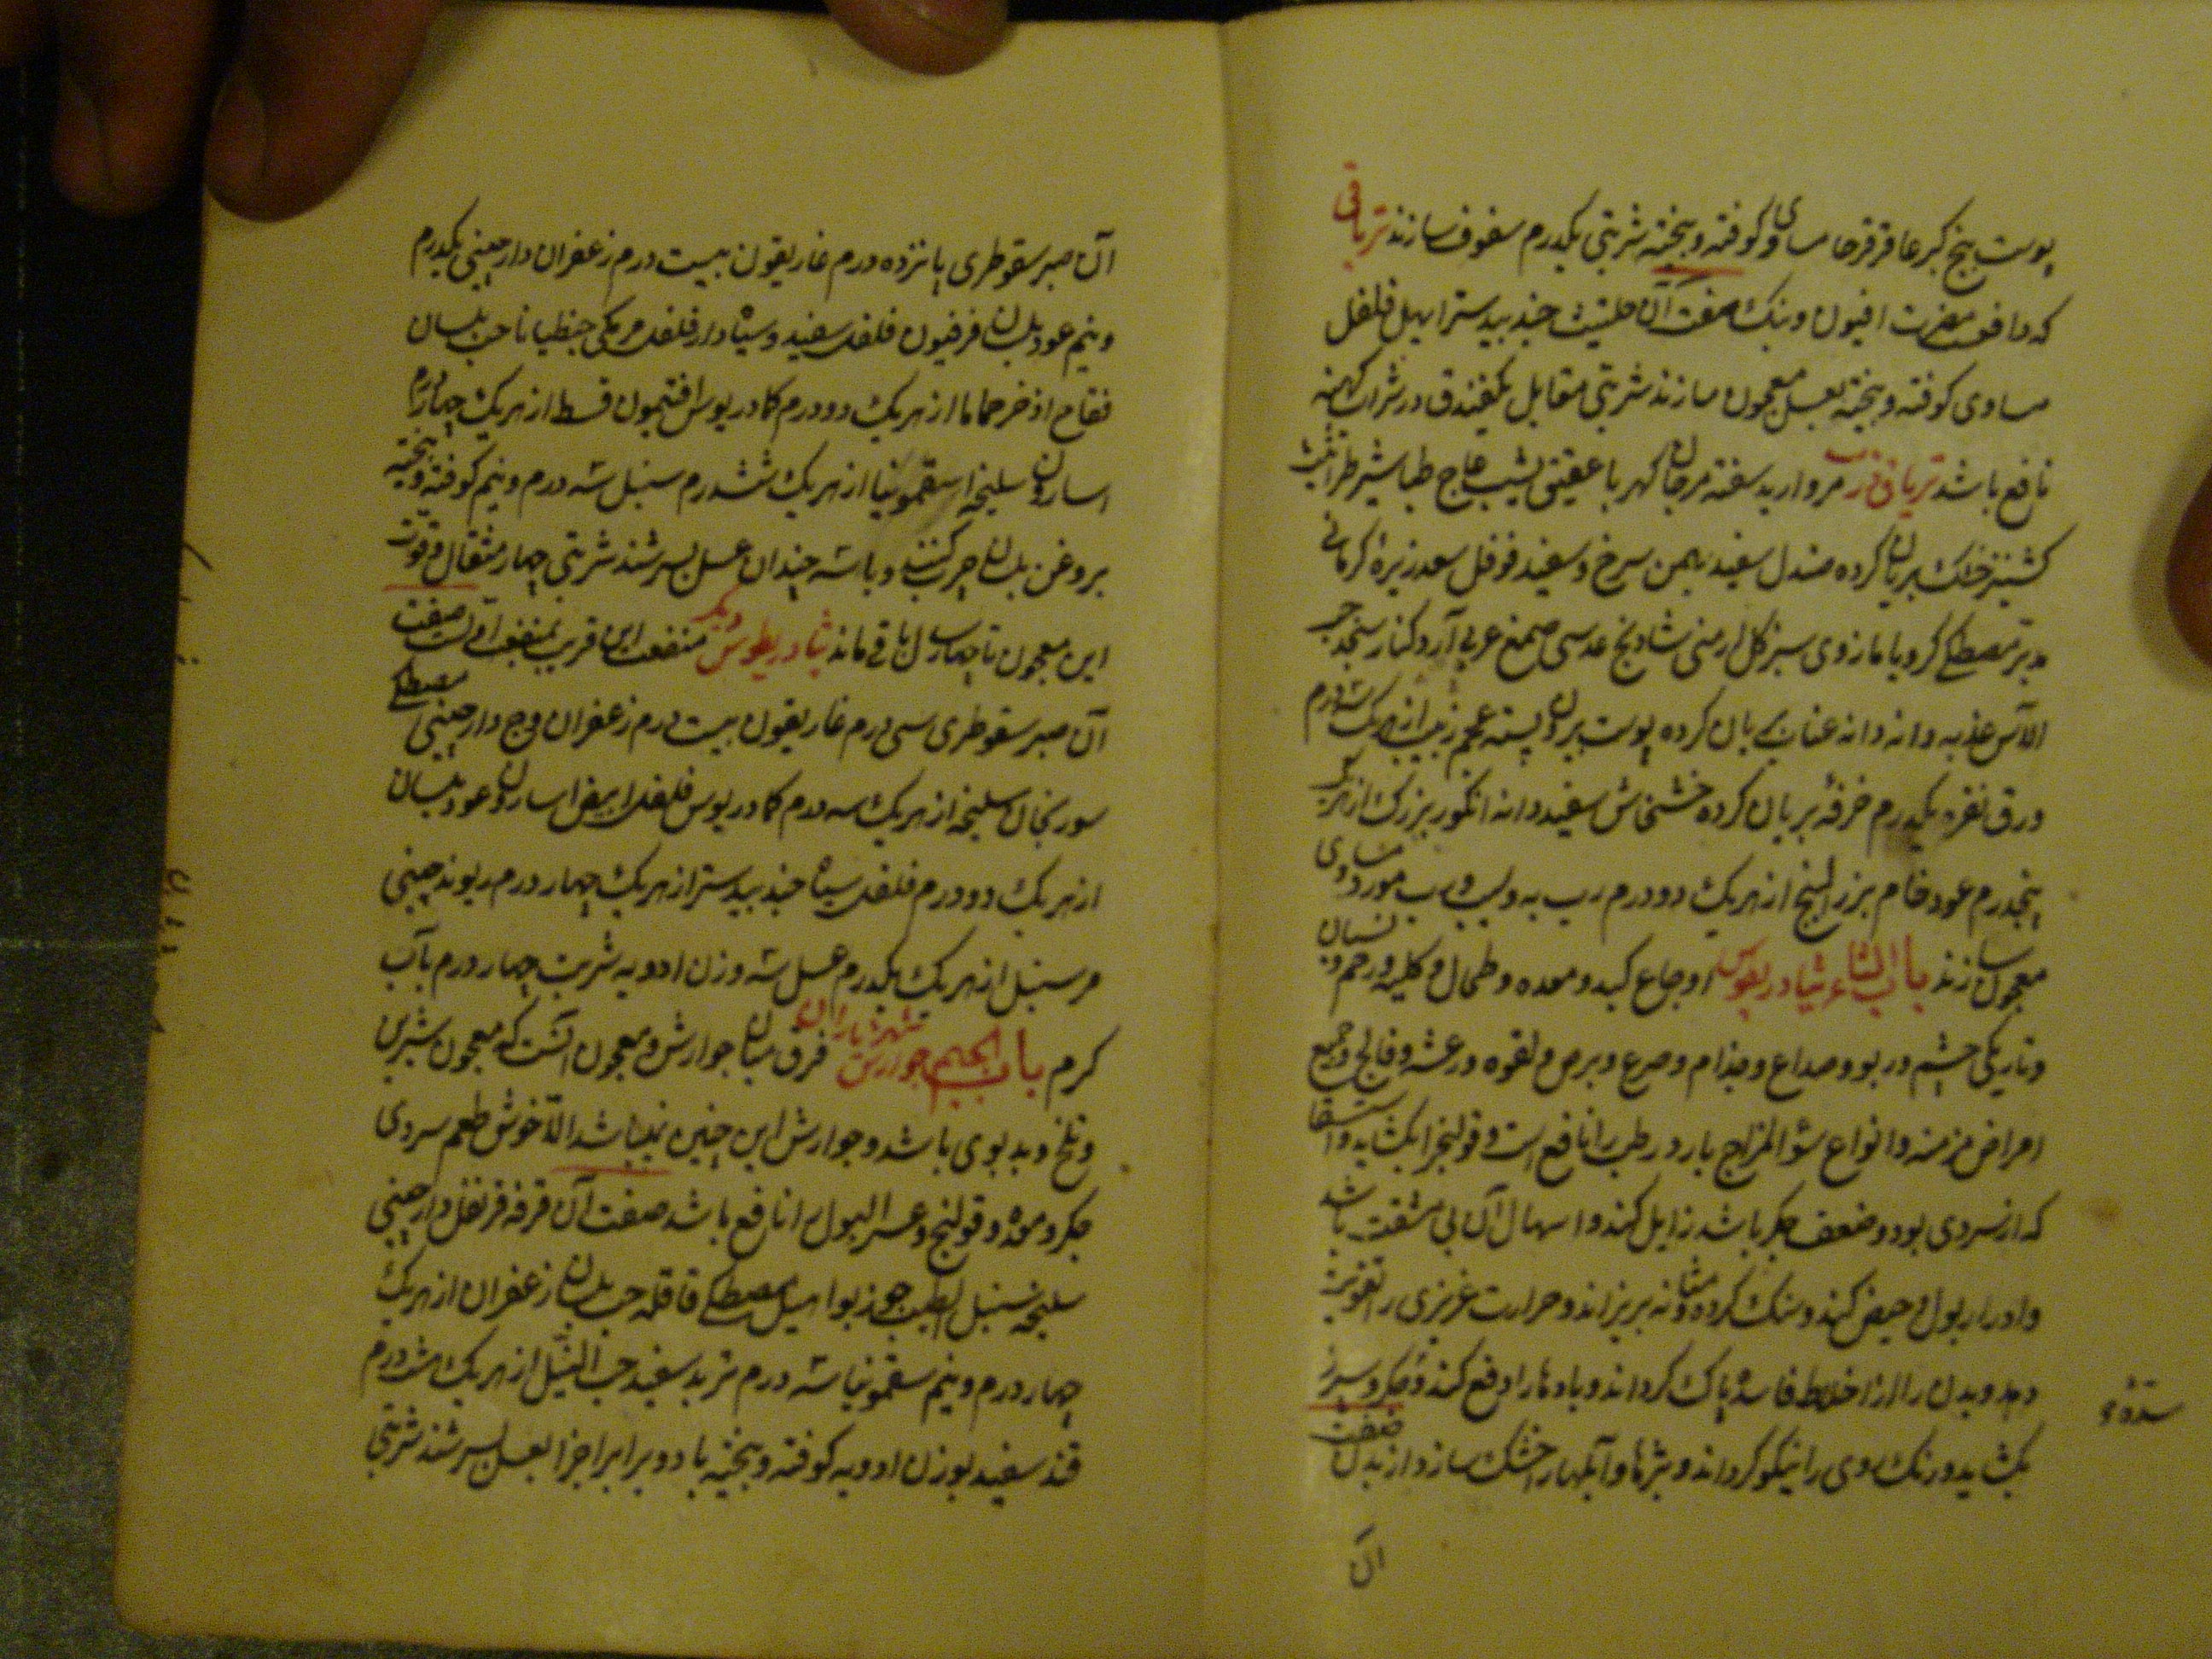 پوست بیخ کبر عاقرقرحا مساوی کوفته و بیخته شربتی یکدرم سفوف سازند تریاقی
که دافع مضرت افیون و بنک صفت آن حلتیت جندبیدستر ابهل فلفل
مساوی کوفته و بیخته بعسل معجون سازند شربتی مقابل یکفندق در شراب کهنه
نافع باشد تریاق ذرب مروارید سفته مرجان کهربا عقیق یشب عاج طباشیر طراثیث
کشنیز خشک بریان کرده صندل سفید بهمن سرخ و سفید فوفل سعد زیره کرمانی
مدبر مصطکی کرویا مازوی سبز کل ارمنی شادنج عدسی صمغ عربی آرد کنار سنجد حب
الآس عذبه دانه دانه عناب بریان کرده پوست بیرون پسته عجم زبیب از هریک سه درم
ورق نقره یکدرم خرفه بریان کرده خشخاش سفید دانه انکور بزرک از هریک
پنجدرم عود خام بزرالبنج از هریک دو درم رب به و سیب و رب مورد مساوی
معجون سازند باب الثاء ثیادریطوس اوجاع کبد و معده و طحال و کلیه و رحم و نسیان
و تاریکی چشم و ربو و صداع و جذام و صرع و برص و لقوه و رعشه و فالج و جمیع
امراض مزمنه و انواع سؤالمزاج بارد رطب را نافع است و قولنج را بکشاید و استسقا
که از سردی بود و ضعف جکر باشد زایل کند و اسهال آن بی مشقت باشد
و ادرار بول و حیض کند و سنک کرده و مثانه بریزاند و حرارت غریزی را تقویت
دهد و بدن را از اخلاط فاسده پاک کرداند و بادها را دفع کند و جکر و سپرز
بکشاید و رنک روی را نیکو کرداند و بثرها و آبلها را خشک سازد از بدن صفت
سده
آن
آن صبر سقوطری پانزده درم غاریقون بیست درم زعفران دارچینی یکدرم
و نیم عود بلسان فرفیون فلفل سفید و سیاه دارفلفل مر مکی جنطیانا حب بلسان
فقاح اذخر حماما از هریک دو درم کمادریوس افتیمون قسط از هریک چهاردرم
اسارون سلیخه سقمونیا از هریک ششدرم سنبل سه درم و نیم کوفته و بیخته
بروغن بلسان چرب کنند و با سه چندان عسل بسرشند شربتی چهار مثقال و قوت
این معجون تا چهار سال باقی ماند ثیادریطوس دیکر منفعت این قریب بمنفعت اولست صفت
آن صبر سقوطری سی درم غاریقون بیست درم زعفران وج دارچینی مصطکی
سورنجان سلیخه از هریک سه درم کمادریوس فلفل ابیض اسارون عود بلسان
از هریک دو درم فلفل سیاه جندبیدستر از هریک چهار درم ریوند چینی
مر سنبل از هریک یکدرم عسل سه وزن ادویه شربت چهار درم بآب
کرم باب الجیم جوارش شهریاران فرق میان جوارش و معجون آنست که معجون شیرین
و تلخ و بدبوی باشد و جوارش این چنین نمیباشد الا خوش طعم سردی
جکر و معده و قولنج و عسر البول را نافع باشد صفت آن قرفه قرنفل دارچینی
سلیخه سنبل الطیب جوزبوا هیل مصطکی قاقله حب بلسان زعفران از هریک
چهار درم و نیم سقمونیا سه درم تربد سفید حب النیل از هریک هشت درم
قند سفید بوزن ادویه کوفته و بیخته با دو برابر اجزا بعسل بسرشند شربتی